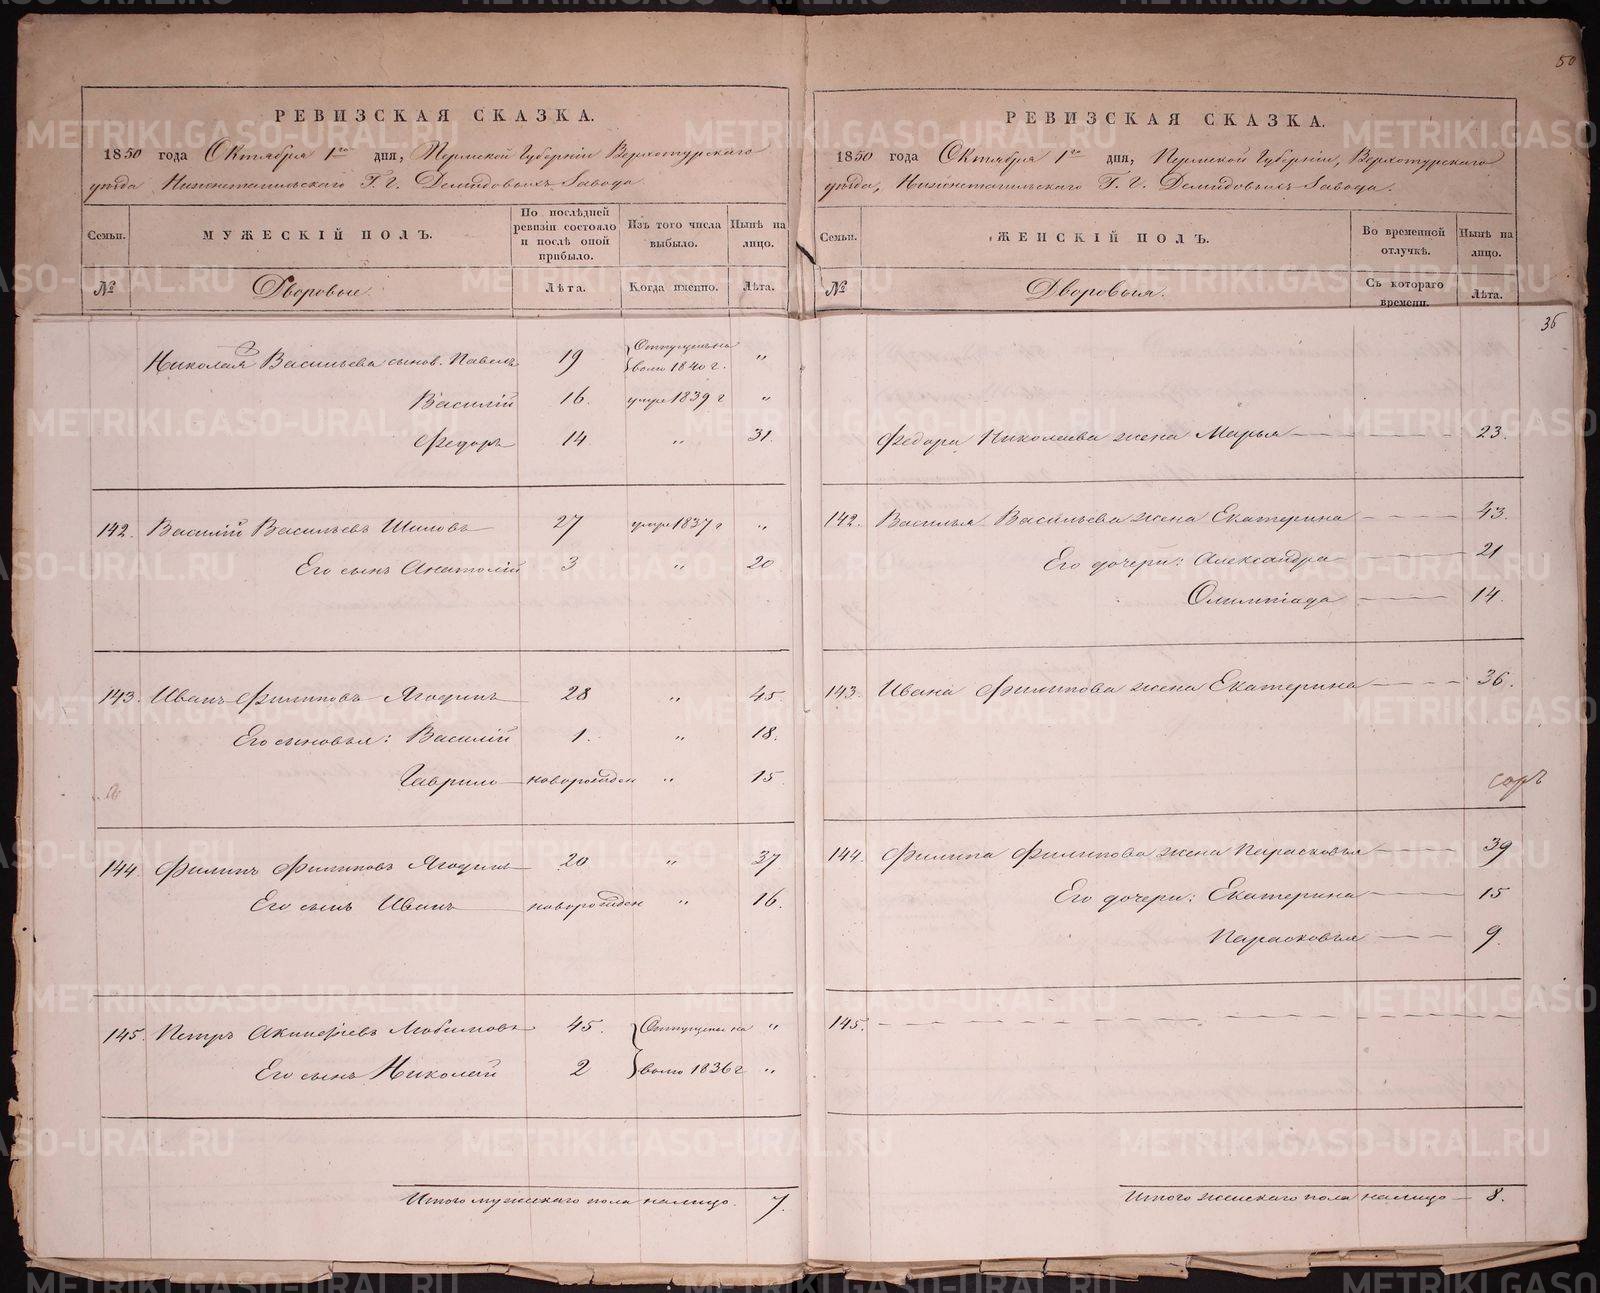 50
РЕВИЗСКАЯ СКАЗКА.
1850 года Октября 1го дня, Пермской Губернiи Верхотурскаго
уѣзда Нижнетагильскаго Г. Г. Демидовыхъ Завода.
Семьи.
МУЖЕСКІЙ ПОЛЪ.
По послѣдней ревизіи состояло и послѣ оной прибыло.
Изъ того числа выбыло.
Нынѣ на лицо.
№
Дворовые.
Лѣта.
Когда именно.
Лѣта.
Николая Васильева сынов. Павелъ 19 Отпущенъ на волю 1840 г. „
Василій 16. умре 1839 г „
Федоръ 14 „ 31.
142. Василій Васильевъ Шиловъ 27 умре 1837 г „
Его сынъ Анатолій 3 „ 20
143. Иванъ Филиповъ Ягодинъ 28 „ 45
Его сыновья: Василій 1. „ 18.
Гаврило новорожден „ 15
144. Филипъ Филиповъ Ягодинъ 20 „ 37
Его сынъ Иванъ новорожден „ 16.
145. Петръ Акинфіевъ Любимовъ 45. Отпущены на „
Его сынъ Николай 2 волю 1836 г „
Итого мужескаго пола налицо. 7.
РЕВИЗСКАЯ СКАЗКА.
1850 года Октября 1го дня, Пермской Губернiи, Верхотурскаго
уѣзда, Нижнетагильскаго Г. Г. Демидовыхъ Завода.
Семьи.
ЖЕНСКІЙ ПОЛЪ.
Во временной отлучкѣ.
Нынѣ на лицо.
№
Дворовыя.
Съ котораго времени.
Лѣта.
36
Федора Николаева жена Марья 23.
142. Василья Васильева жена Екатерина 43.
Его дочери: Александра 21
Олимпіада 14.
143. Ивана Филипова жена Екатерина 36.
144. Филипа Филипова жена Парасковья 39
Его дочери: Екатерина 15
Парасковья 9.
145.
Итого женскаго пола налицо 8.
METRIKI.GASO-URAL.RU